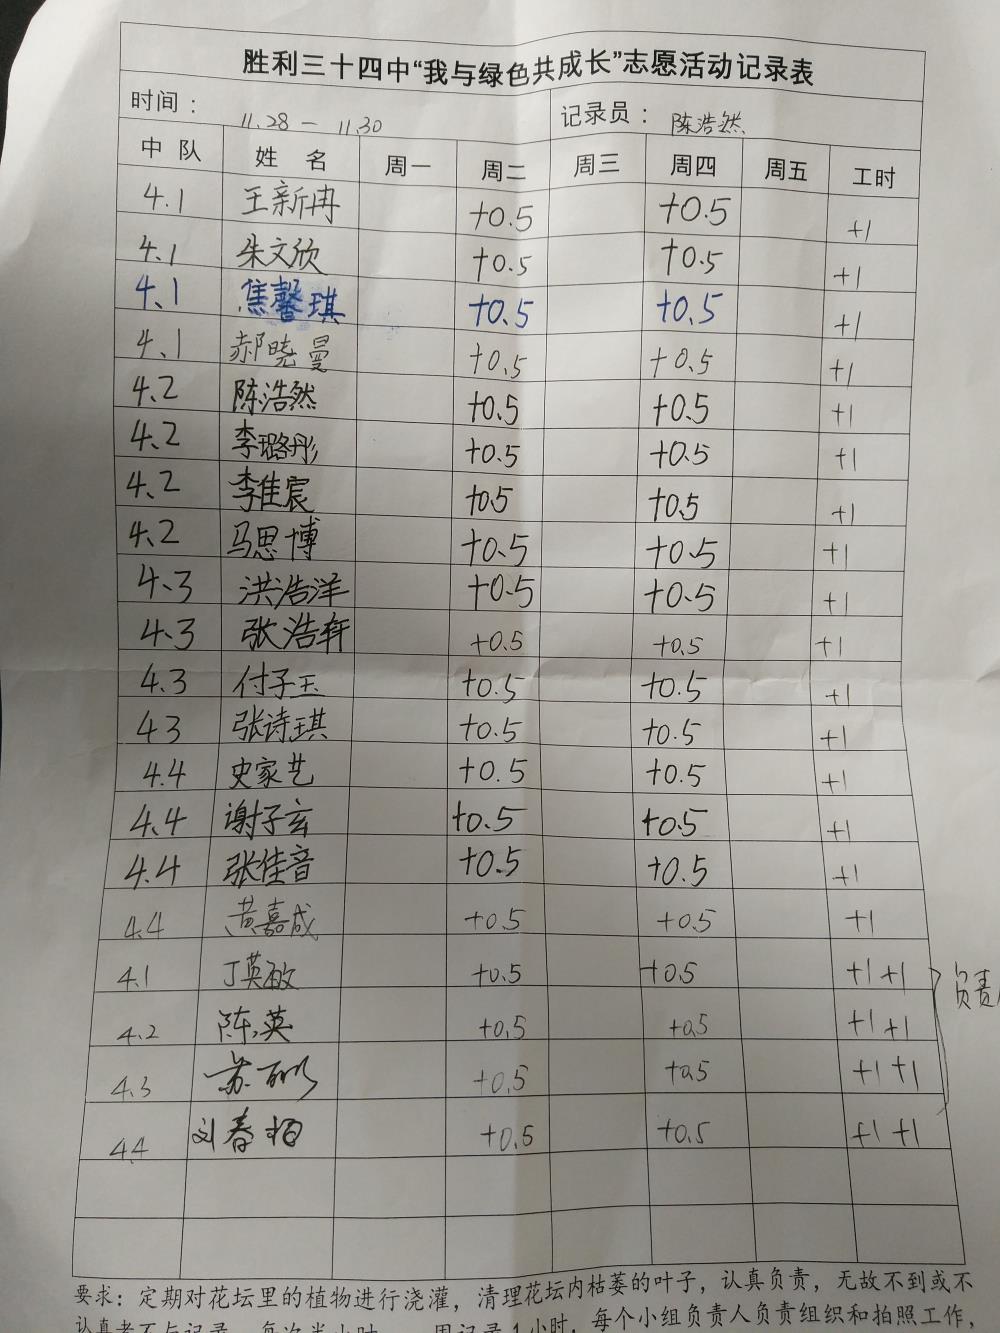 胜利三十四中“我与绿色共成长”志愿活动记录表
时间： 11.28 — 11.30 记录员： 陈浩然
中队 姓名 周一 周二 周三 周四 周五 工时
4.1 王新冉 +0.5 +0.5 +1
4.1 朱文欣 +0.5 +0.5 +1
4.1 焦馨琪 +0.5 +0.5 +1
4.1 郝晓曼 +0.5 +0.5 +1
4.2 陈浩然 +0.5 +0.5 +1
4.2 李璐彤 +0.5 +0.5 +1
4.2 李佳宸 +0.5 +0.5 +1
4.2 马思博 +0.5 +0.5 +1
4.3 洪浩洋 +0.5 +0.5 +1
4.3 张浩轩 +0.5 +0.5 +1
4.3 付子玉 +0.5 +0.5 +1
43 张诗琪 +0.5 +0.5 +1
4.4 史家艺 +0.5 +0.5 +1
4.4 谢子玄 +0.5 +0.5 +1
4.4 张佳音 +0.5 +0.5 +1
4.4 黄嘉成 +0.5 +0.5 +1
4.1 丁英敏 +0.5 +0.5 +1 +1 负责
4.2 陈英 +0.5 +0.5 +1 +1
4.3 苏 +0.5 +0.5 +1 +1
4.4 刘春梅 +0.5 +0.5 +1 +1
要求：定期对花坛里的植物进行浇灌，清理花坛内枯萎的叶子，认真负责，无故不到或不
认真者不与记录。每次半小时， 一周记录1小时，每个小组负责人负责组织和拍照工作，